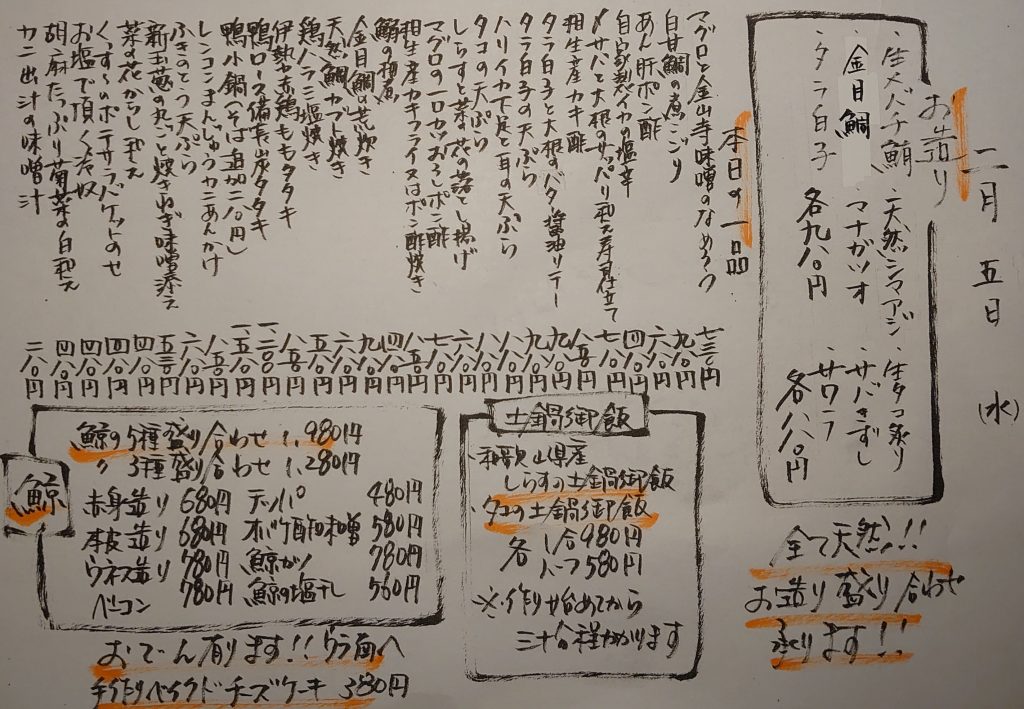 二月五日(水)
お造り
・生メバチ鮪 ・天然シマアジ ・生タコ炙り
・金目鯛 ・マナガツオ ・サバきずし
・タラ白子 ・サワラ
各九八〇円 各八八〇円
全て天然!!
お造り盛り合わせ
承ります!!
本日の一品
マグロと金山寺味噌のなめろう 七三〇円
白甘鯛の煮こごり
あん肝ポン酢
自家製イカの塩辛
〆サバと大根のサッパリ和え寿司仕立て
相生産カキ酢
タラ白子と大根のバタ醤油ソテー
タラ白子の天ぷら
ハリイカ下足と耳の天ぷら
タコの天ぷら
しらすと菜の花の落とし揚げ
マグロの一口カツおろしポン酢
相生産カキフライ又はポン酢焼き
鰤の柚庵
金目鯛の荒炊き
天然鯛カブト焼き
鶏ハラミ塩焼き
伊勢赤鶏ももタタキ
鴨ロース備長炭タタキ
鴨小鍋(そば追加二八〇円)
レンコンまんじゅうカニあんかけ
ふきのとう天ぷら
新玉葱の丸ごと焼きねぎ味噌添え
菜の花からし和え
くんすっのポテサラバゲットのせ
お塩で頂く冷奴
胡麻たっぷり菊菜の白和え
カニ出汁の味噌汁 二八〇円
土鍋御飯
・和歌山県産
しらすの土鍋御飯
・タコの土鍋御飯
各 1合980円
ハーフ580円
※作り始めてから
三十分程かかります
鯨
鯨の5種盛り合わせ 1,980円
〃 3種盛り合わせ 1,280円
赤身造り 680円 テッパ 480円
本皮造り 680円 オバケ酢味噌 580円
ウネス造り 780円 鯨カツ 780円
ベーコン 780円 鯨の塩干し 560円
おでん有ります!!ウラ面へ
手作りベイクドチーズケーキ 380円